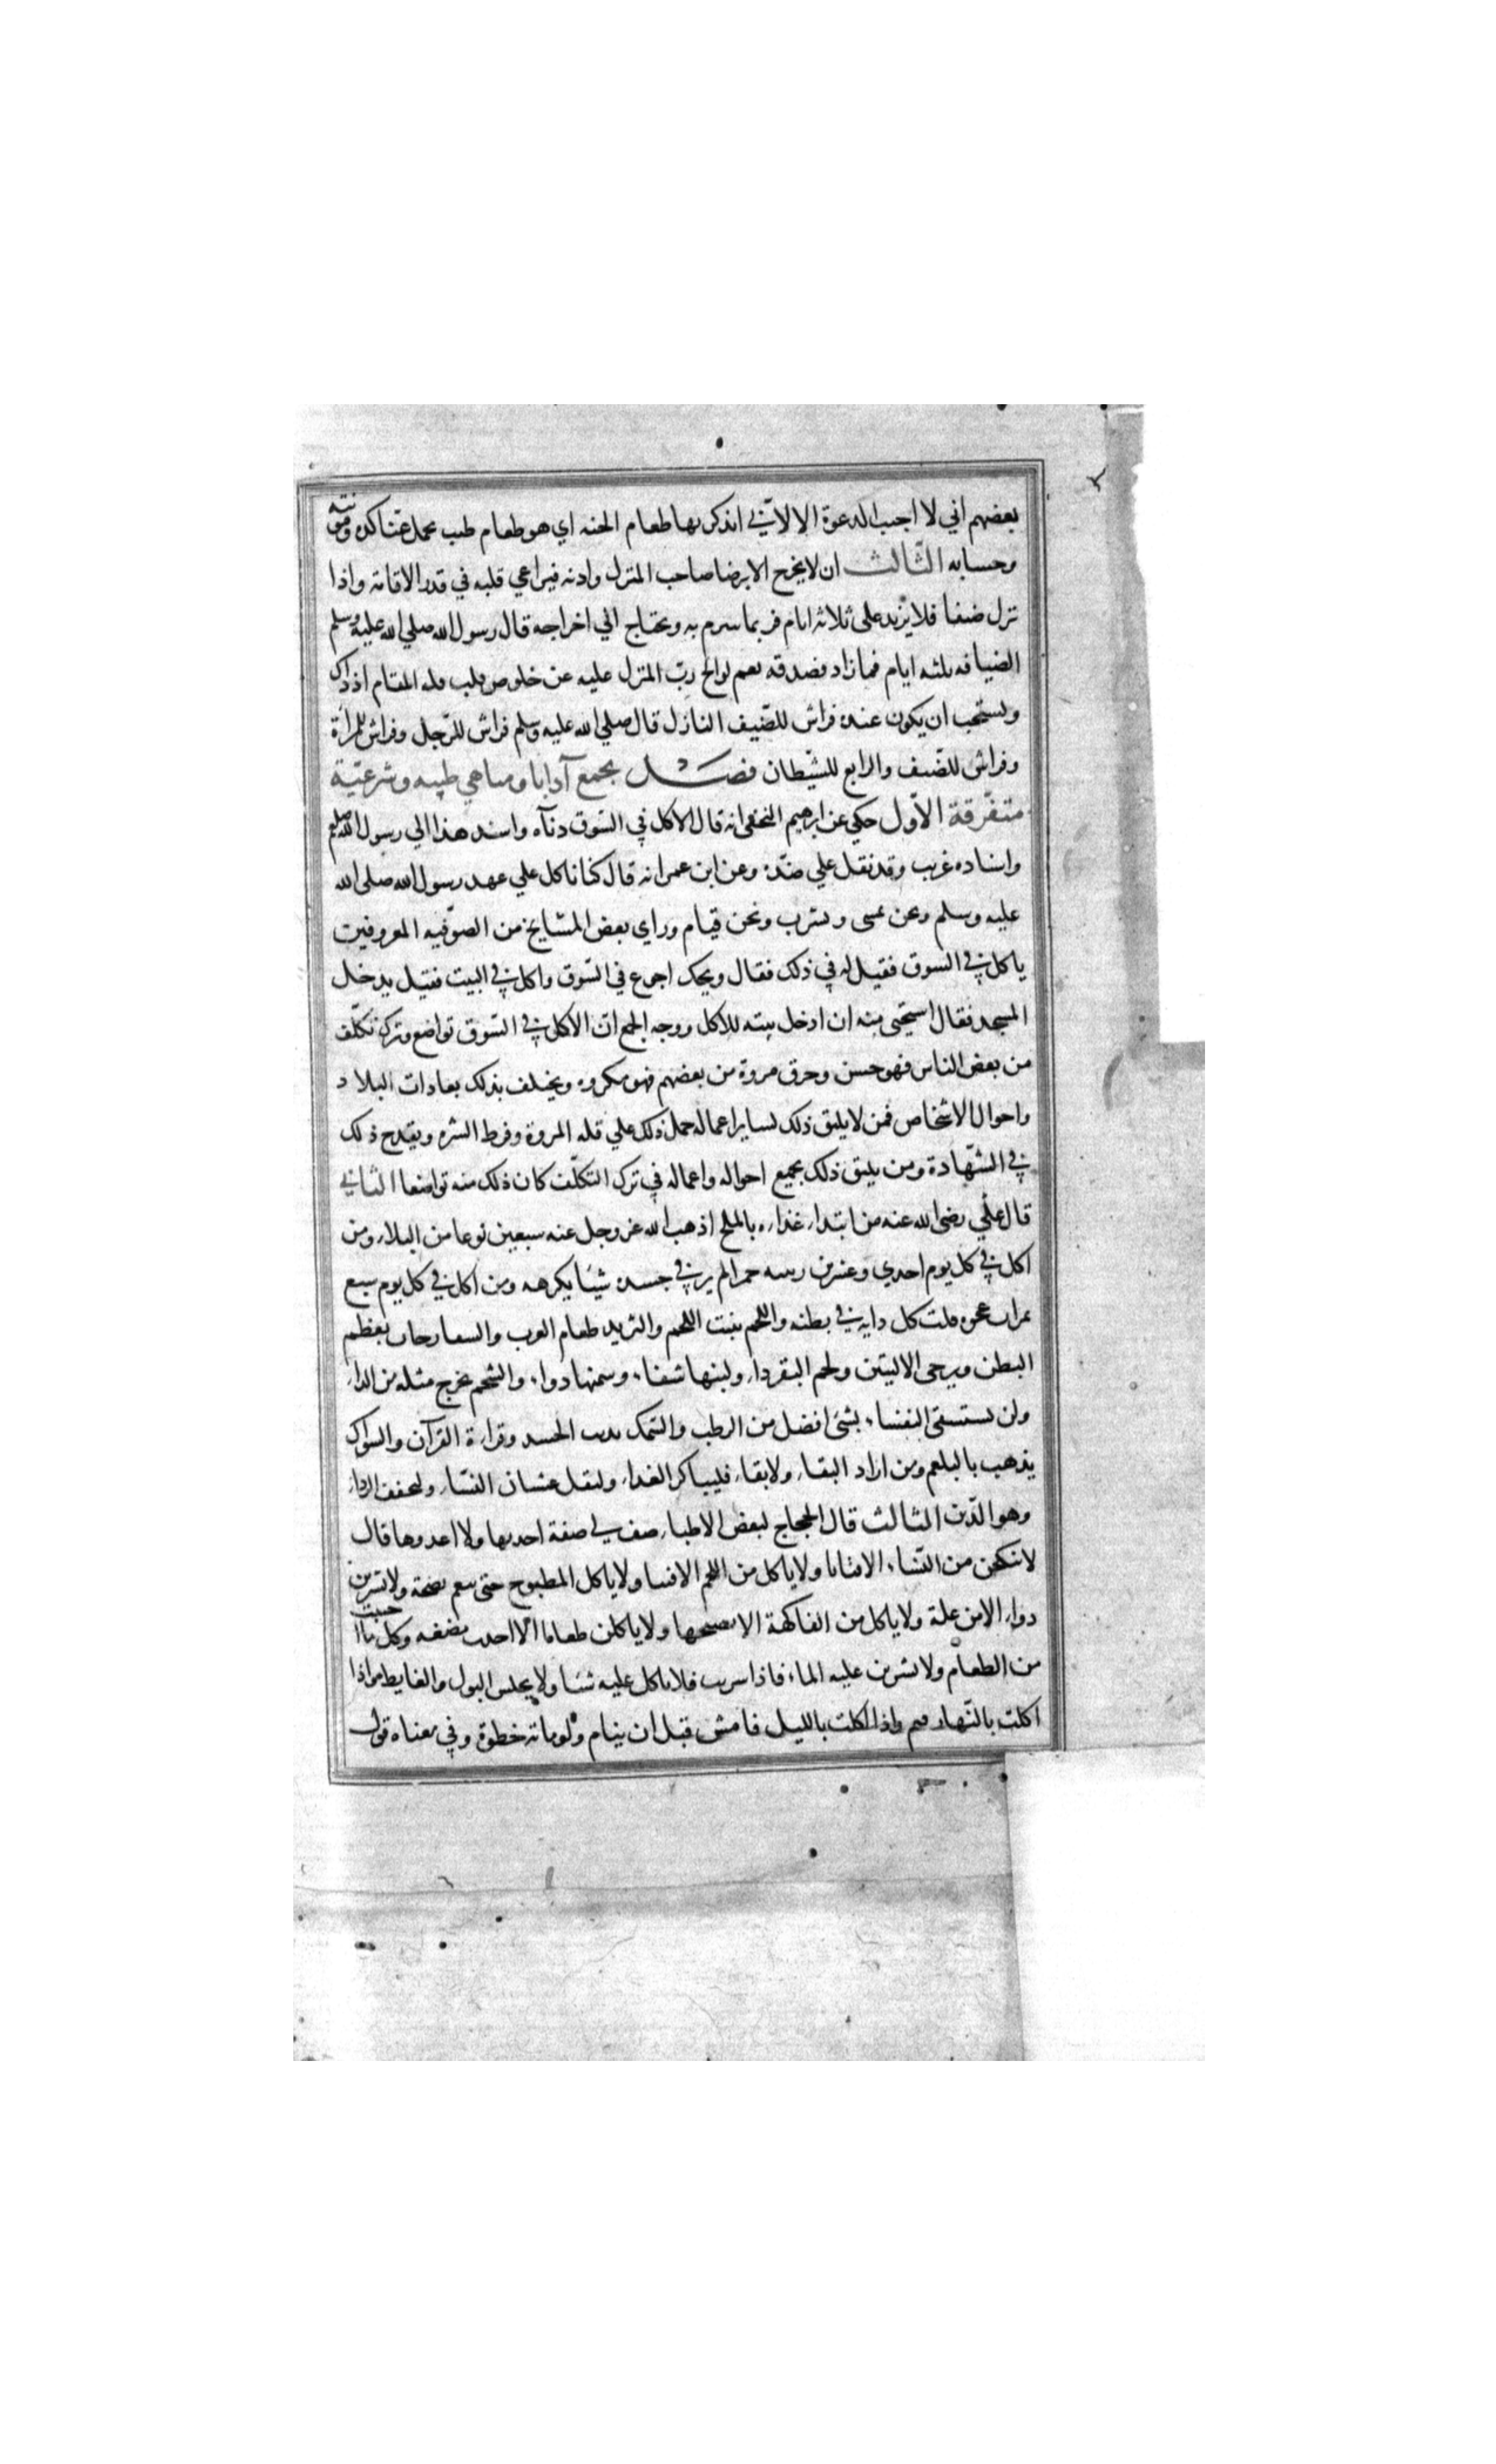 بعضهم اني لا اجيب الدعوة الا لاني اتذكر بها طعام الجنه اي هو طعام طيب يحمل عنا كده ومؤنته
وحسابه الثالث ان لا يخرج الا برضا صاحب المنزل واذنه فيراعي قلبه في قدر الاقامة واذا
نزل ضيفا فلا يزيد على ثلاثة ايام فربما تبرم به ويحتاج الي اخراجه قال رسول الله صلي الله عليه وسلم
الضيافه ثلثه ايام فما زاد فصدقه نعم لو الح رب المنزل عليه عن خلوص قلب فله المقام اذ ذاك
ويستحب ان يكون عنده فراش للضيف النازل قال صلي الله عليه وسلم فراش للرجل وفراش للمرأة
وفراش للضيف والرابع للشيطان فصل يجمع آدابا ومناهي طبيه وشرعية
متفرقة الاول حكي عن ابرهيم النخعي انه قال الاكل في السوق دناءه واسند هذا الي رسول الله صلعم
واسناده غريب وقد نقل علي ضده وعن ابن عمر انه قال كنا ناكل علي عهد رسول الله صلى الله
عليه وسلم ونحن نمشي ونشرب ونحن قيام وراي بعض المشايخ من الصوفيه المعروفين
ياكل في السوق فقيل له في ذلك فقال ويحك اجوع في السوق واكل في البيت فقيل يدخل
المسجد فقال استحيي منه ان ادخل بيته للاكل ووجه الجمع ان الاكل في السوق تواضع وترك تكلف
من بعض الناس فهو حسن وخرق مروة من بعضهم فهو مكروه ويختلف بذلك بعادات البلاد
واحوال الاشخاص فمن لا يليق ذلك بساير اعماله حمل ذلك علي قله المروة وفرط الشره ويقدح ذلك
في الشهادة ومن يليق ذلك بجميع احواله واعماله في ترك التكلف كان ذلك منه تواضعا الثاني
قال علي رضي الله عنه من ابتداء غداءه بالملح اذهب الله عز وجل عنه سبعين نوعا من البلاء ومن
اكل في كل يوم احدي وعشرين زبيبه حمرا لم ير في جسده شيئا يكرهه ومن اكل في كل يوم سبع
تمرات عجوه قتلت كل دابه في بطنه واللحم ينبت اللحم والثريد طعام العرب والسفارجات يعظم
البطن ويرخي الاليتين ولحم البقر داء ولبنها شفاء وسمنها دواء والشحم يخرج مثله من الداء
ولن تستشفي النفساء بشئ افضل من الرطب والسمك يذيب الجسد وقراءة القرآن والسواك
يذهب بالبلغم ومن اراد البقاء ولا بقاء فليباكر الغداء وليقل غشيان النساء وليخفف الرداء
وهو الدين الثالث قال الحجاج لبعض الاطباء صف لي صفة اخذ بها ولا اعدوها قال
لا تنكحن من النساء الا فتاتا ولا ياكل من اللحم الا فتيا ولا ياكل المطبوخ حتى ينعم نضجة ولا تشربن
دواء الا من علة ولا ياكل من الفاكهة الا نضيجها ولا ياكلن طعاما الا اجدت مضغه وكل ما احببت
من الطعام ولا تشربن عليه الماء فاذا شربت فلا تاكل عليه شيئا ولا يحبس البول والغايط واذا
اكلت بالنهار فنم واذا اكلت بالليل فامش قبل ان ينام ولو ماتة خطوة وفي معناه قول